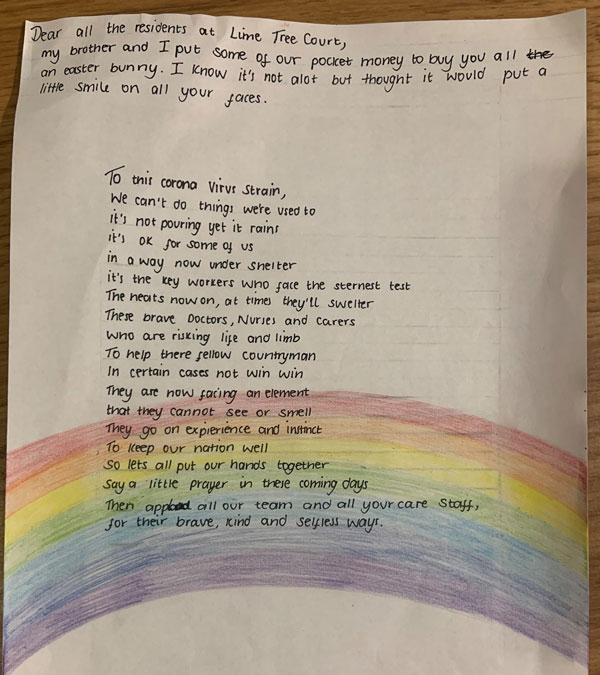 Dear all the residents at Lime Tree Court,
my brother and I put some of our pocket money to buy you all the
an easter bunny. I know it's not alot but thought it would put a
little smile on all your faces.
To this corona Virus Strain,
We can't do things we're used to
it's not pouring yet it rains
it's OK for some of us
in a way now under shelter
it's the key workers who face the sternest test
The heats now on, at times they'll swelter
These brave Doctors, Nurses and Carers
who are risking life and limb
To help there fellow countryman
In certain cases not win win
They are now facing an element
that they cannot see or smell
They go on expierience and instinct
To keep our nation well
So lets all put our hands together
Say a little prayer in these coming days
Then all our team and all your care Staff,
for their brave, kind and selfless ways.